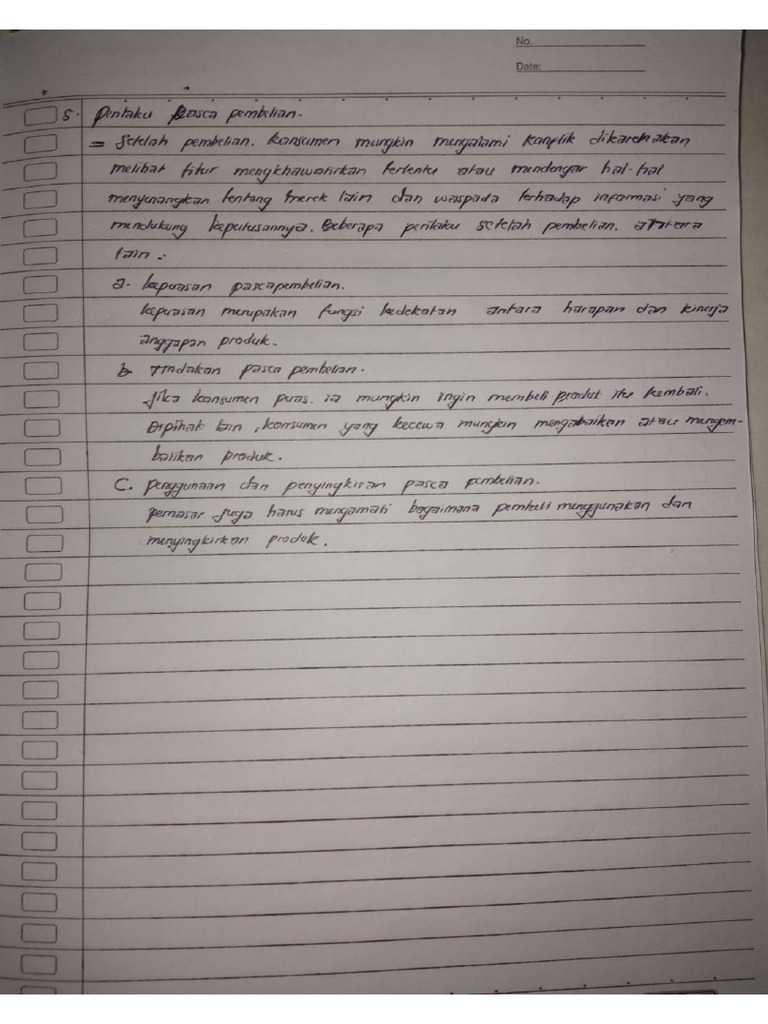 No.
Date:
5. Perilaku Pasca pembelian.
= Setelah pembelian, konsumen mungkin mengalami konflik dikarenakan
melihat fitur mengkhawatirkan tertentu atau mendengar hal-hal
menyenangkan tentang merek lain dan waspada terhadap informasi yang
mendukung keputusannya. Beberapa perilaku setelah pembelian, antara
lain :
a. kepuasan pascapembelian.
kepuasan merupakan fungsi kedekatan antara harapan dan kinerja
anggapan produk.
b Tindakan pasca pembelian.
Jika konsumen puas, ia mungkin ingin membeli produk itu kembali.
Dipihak lain, konsumen yang kecewa mungkin mengabaikan atau mengem-
balikan produk.
C. penggunaan dan penyingkiran pasca pembelian.
pemasar juga harus mengamati bagaimana pembeli menggunakan dan
menyingkirkan produk.